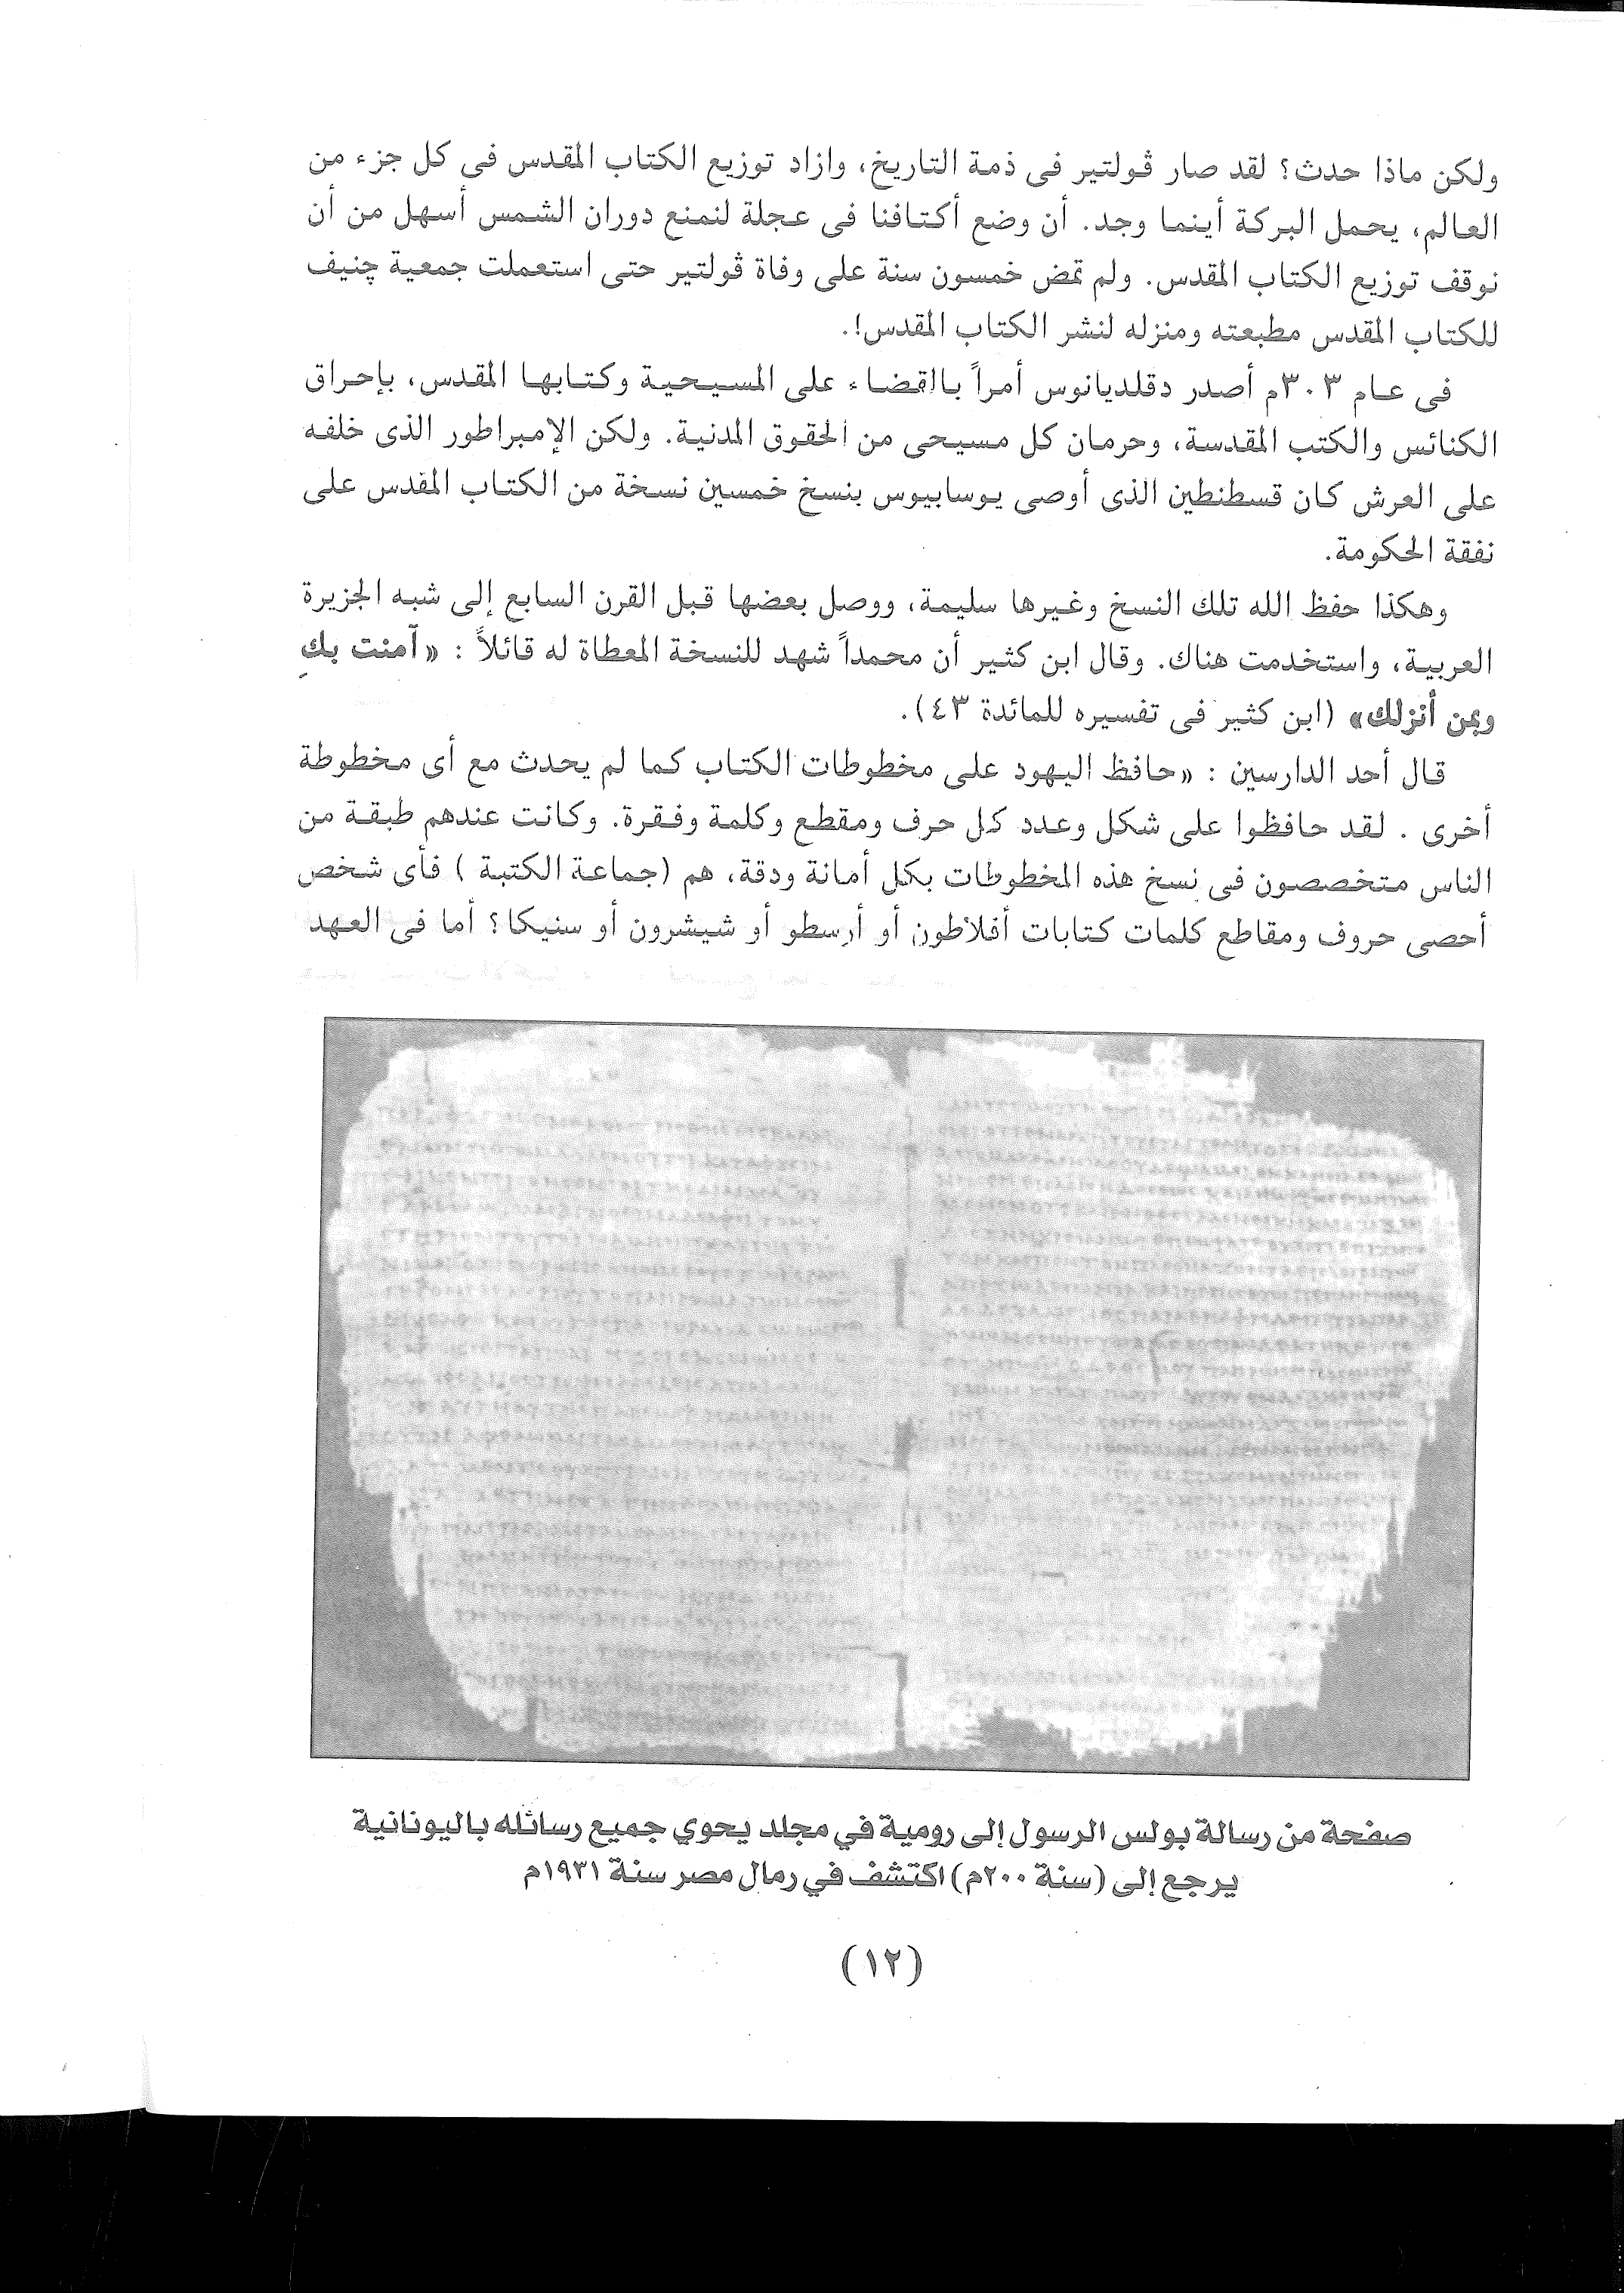 ولكن ماذا حدث؟ لقد صار ڤولتير فى ذمة التاريخ، وازاد توزيع الكتاب المقدس فى كل جزء من
العالم، يحمل البركة أينما وجد. أن وضع أكتافنا فى عجلة لنمنع دوران الشمس أسهل من أن
نوقف توزيع الكتاب المقدس. ولم تمض خمسون سنة على وفاة ڤولتير حتى استعملت جمعية چنيف
للكتاب المقدس مطبعته ومنزله لنشر الكتاب المقدس!.
فى عام ٣٠٣م أصدر دقلديانوس أمراً بالقضاء على المسيحية وكتابها المقدس، بإحراق
الكنائس والكتب المقدسة، وحرمان كل مسيحى من الحقوق المدنية. ولكن الإمبراطور الذى خلفه
على العرش كان قسطنطين الذى أوصى يوسابيوس بنسخ خمسين نسخة من الكتاب المقدس على
نفقة الحكومة.
وهكذا حفظ الله تلك النسخ وغيرها سليمة، ووصل بعضها قبل القرن السابع إلى شبه الجزيرة
العربية، واستخدمت هناك. وقال ابن كثير أن محمداً شهد للنسخة المعطاة له قائلاً : «آمنت بكِ
وبمن أنزلك» (ابن كثير فى تفسيره للمائدة ٤٣).
قال أحد الدارسين : «حافظ اليهود على مخطوطات الكتاب كما لم يحدث مع أى مخطوطة
أخرى . لقد حافظوا على شكل وعدد كل حرف ومقطع وكلمة وفقرة. وكانت عندهم طبقة من
الناس متخصصون فى نسخ هذه المخطوطات بكل أمانة ودقة، هم (جماعة الكتبة ) فأى شخص
أحصى حروف ومقاطع كلمات كتابات أفلاطون أو أرسطو أو شيشرون أو سنيكا؟ أما فى العهد
صفحة من رسالة بولس الرسول إلى رومية في مجلد يحوي جميع رسائله باليونانية
يرجع إلى (سنة ٢٠٠م) اكتشف في رمال مصر سنة ١٩٣١م
(١٢)